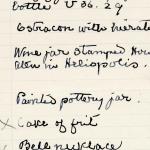 bottle V 36. 29
Ostracon with hierat
Wine jar stamped Hou
Aten in Heliopolis.
Painted pottery jar.
x Cake of frit
Bell necklace